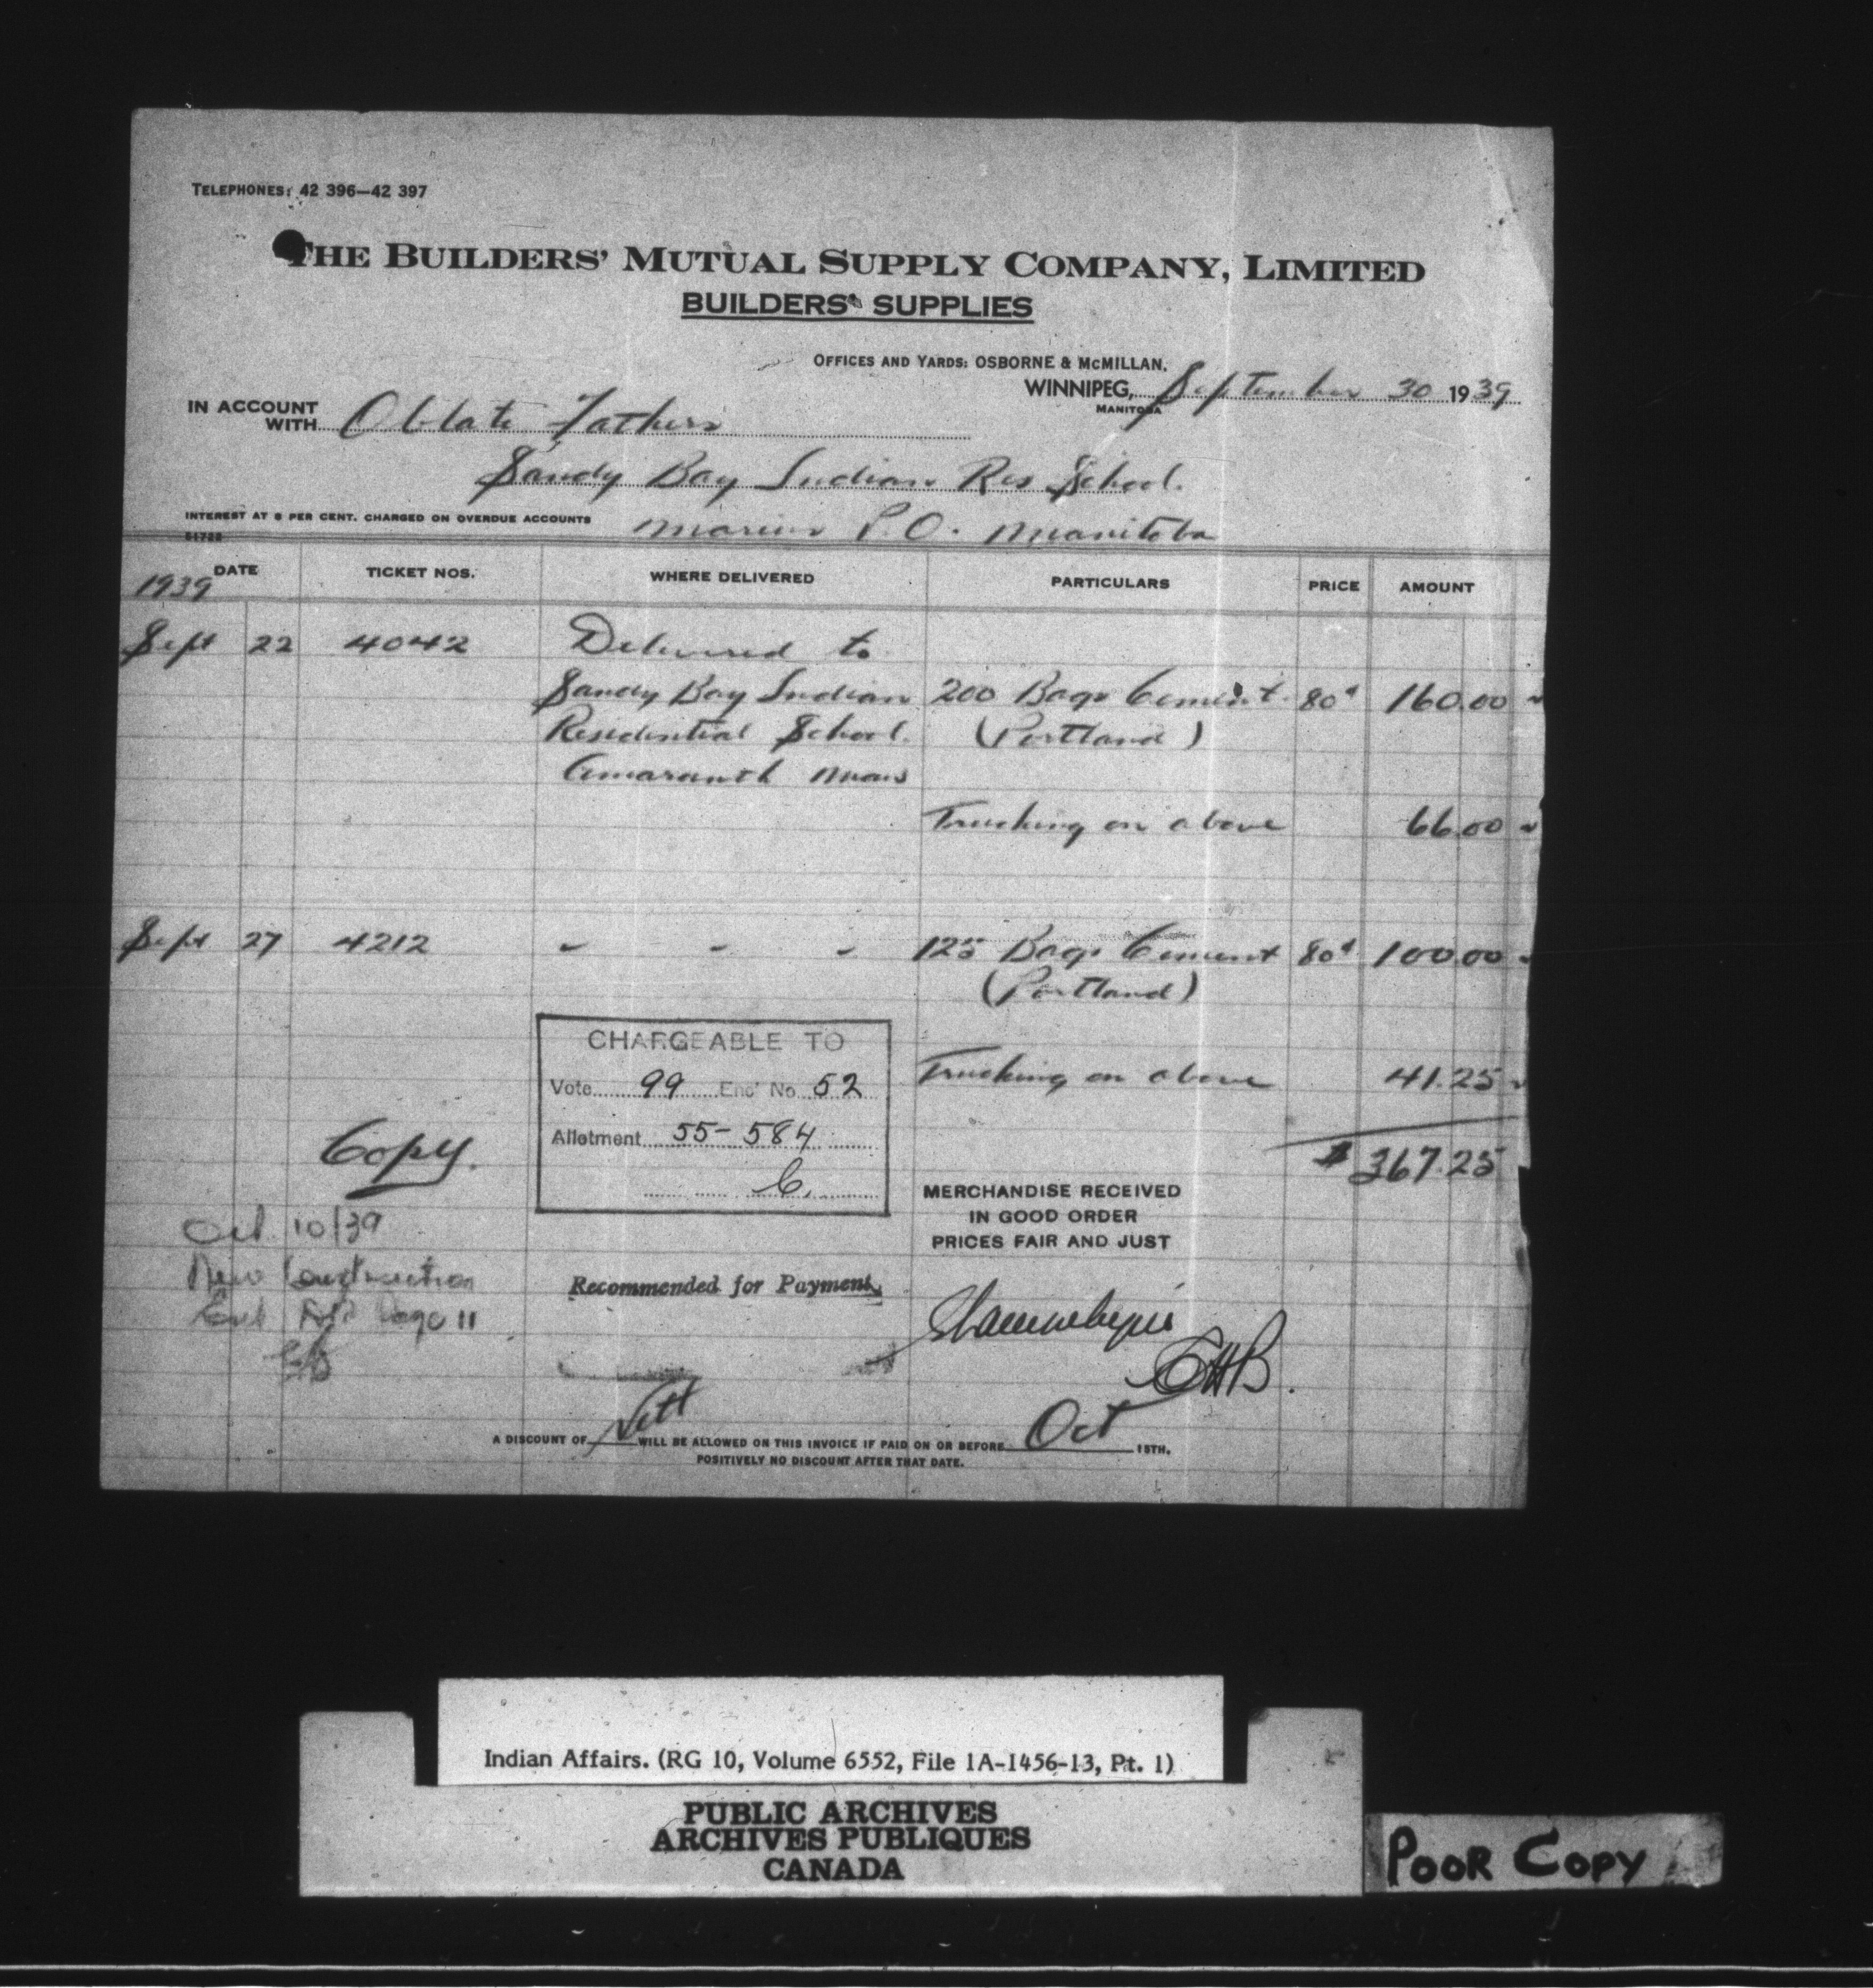 TELEPHONES: 42 396—42 397
THE BUILDERS' MUTUAL SUPPLY COMPANY, LIMITED
BUILDERS' SUPPLIES
OFFICES AND YARDS: OSBORNE & McMILLAN,
WINNIPEG, September 30 1939
MANITOBA
IN ACCOUNT WITH Oblate Fathers
Sandy Bay Indian Res School.
INTEREST AT 8 PER CENT. CHARGED ON OVERDUE ACCOUNTS
Marius P.O. Manitoba
51722
DATE TICKET NOS. WHERE DELIVERED PARTICULARS PRICE AMOUNT
1939
Sept 22 4042 Delivered to
Sandy Bay Indian 200 Bags Cement 80¢ 160.00
Residential School. (Portland)
Amaranth Man
Trucking on above 66.00
Sept 27 4212 " " " 125 Bags Cement 80¢ 100.00
(Portland)
CHARGEABLE TO
Vote 99 Enc' No 52
Trucking on above 41.25
Allotment 55-584
Copy.
$367.25
C.
MERCHANDISE RECEIVED
IN GOOD ORDER
PRICES FAIR AND JUST
Oct 10/39
New Construction
Page 11
Recommended for Payment
Nett
A DISCOUNT OF WILL BE ALLOWED ON THIS INVOICE IF PAID ON OR BEFORE Oct 15TH.
POSITIVELY NO DISCOUNT AFTER THAT DATE.
Indian Affairs. (RG 10, Volume 6552, File 1A-1456-13, Pt. 1)
PUBLIC ARCHIVES
ARCHIVES PUBLIQUES
CANADA
POOR COPY